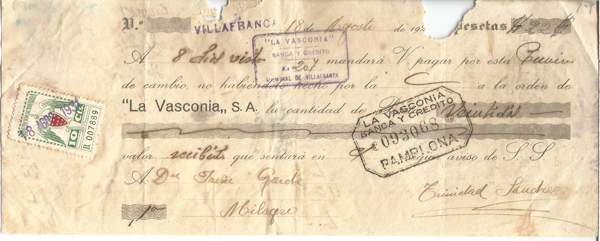 VILLAFRANCA
18 de Agosto de 19
pesetas # 22 #
"LA VASCONIA"
BANCA Y CRÉDITO
SUCURSAL DE VILLAFRANCA
A 8 d/ vista mandará V pagar por esta Primera
de cambio, no habiéndolo hecho por la a la orden de
"La Vasconia", S. A. la cantidad de Veintidós
LA VASCONIA
BANCA Y CREDITO
093068
PAMPLONA
10 CS
B.007889
valor recibido que sentará en según aviso de S. S.
A Dn Javier
Milagro
Trinidad